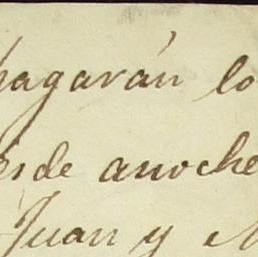 pagarán lo
esde anoche
Juan y